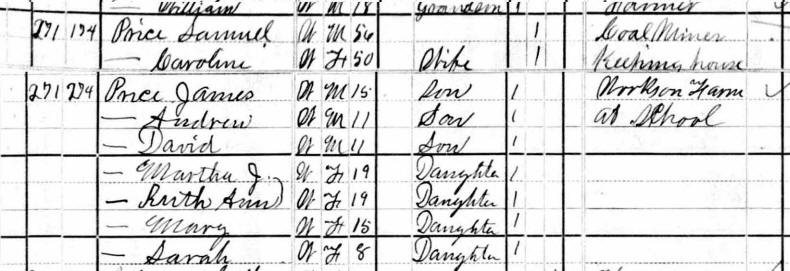 — William W M 18 Grandson 1 Farmer
271 174 Price Samuel W M 56 1 Coal Miner
— Caroline W F 50 Wife 1 Keeping house
271 274 Price James W M 15 Son 1 Works on Farm
— Andrew W M 11 Son 1 at School
— David W M 11 Son 1
— Martha J. W F 19 Daughter 1
— Ruth Ann W F 19 Daughter 1
— Mary W F 15 Daughter 1
— Sarah W F 8 Daughter 1